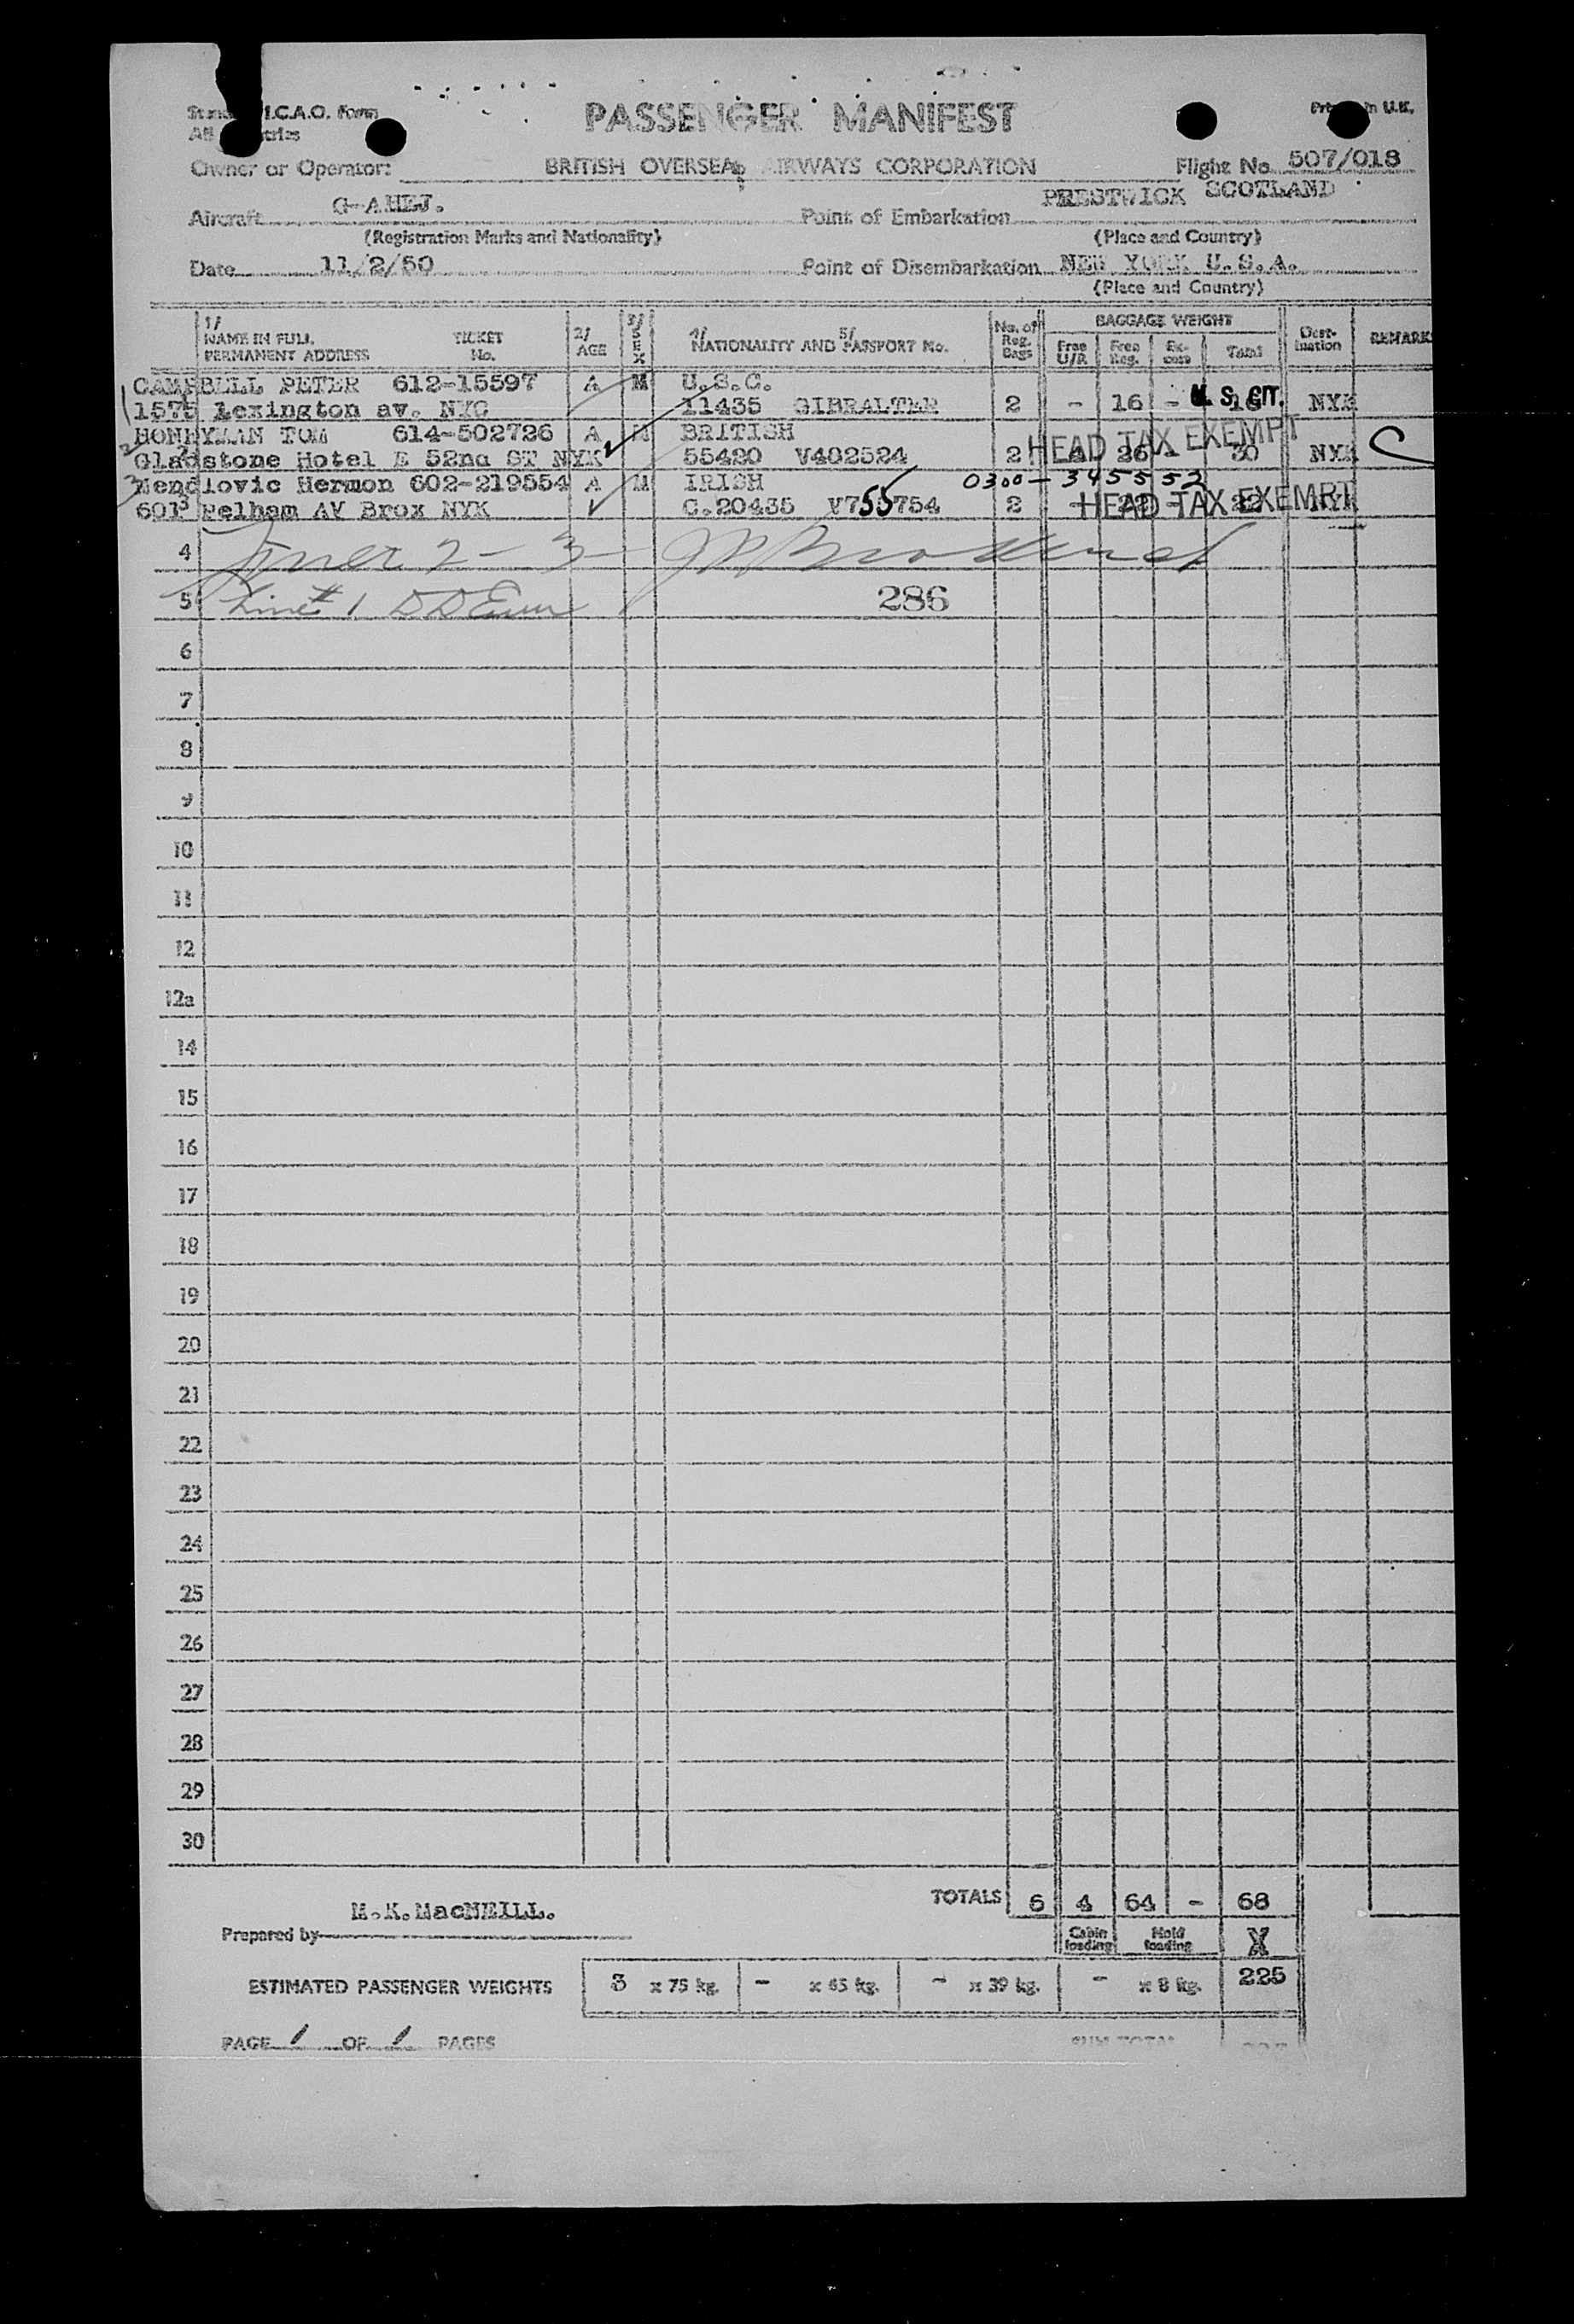 I.C.A.O. Form
PASSENGER MANIFEST
in U.K.
Owner or Operator: BRITISH OVERSEAS AIRWAYS CORPORATION Flight No. 507/018
Aircraft G-AHEJ. Point of Embarkation PRESTWICK SCOTLAND
(Registration Marks and Nationality) (Place and Country)
Date 11/2/50 Point of Disembarkation NEW YORK U.S.A.
(Place and Country)
1/ NAME IN FULL PERMANENT ADDRESS TICKET No. 2/ AGE 3/ SEX 4/ NATIONALITY AND 5/ PASSPORT No. No. of Reg. Bags BAGGAGE WEIGHT Free U/R Free Reg. Ex-cess Total Dest-ination REMARKS
1 CAMPBELL PETER 612-15597 A M U.S.C.
1575 Lexington av. NYC 11435 GIBRALTER 2 - 16 - 16 U.S. CIT. NYK
2 HONEYMAN TOM 614-502726 A M BRITISH HEAD TAX EXEMPT
Gladstone Hotel E 52nd ST NYK 55420 V402524 2 4 26 - 30 NYK C
3 Mendlovic Hermon 602-219554 A M IRISH 0300-345552
601 Pelham AV Brox NYK C.20435 V755754 2 - 22 - 22 HEAD TAX EXEMPT NYK
4 2 - 3 -
5 Line # 1 286
6
7
8
9
10
11
12
12a
14
15
16
17
18
19
20
21
22
23
24
25
26
27
28
29
30
TOTALS 6 4 64 - 68
M.K.MacNEILL.
Prepared by Cabin loading Hold loading X
ESTIMATED PASSENGER WEIGHTS 3 x 75 kg. - x 65 kg. - x 39 kg. - x 8 kg. 225
PAGE 1 OF 1 PAGES SUB TOTAL